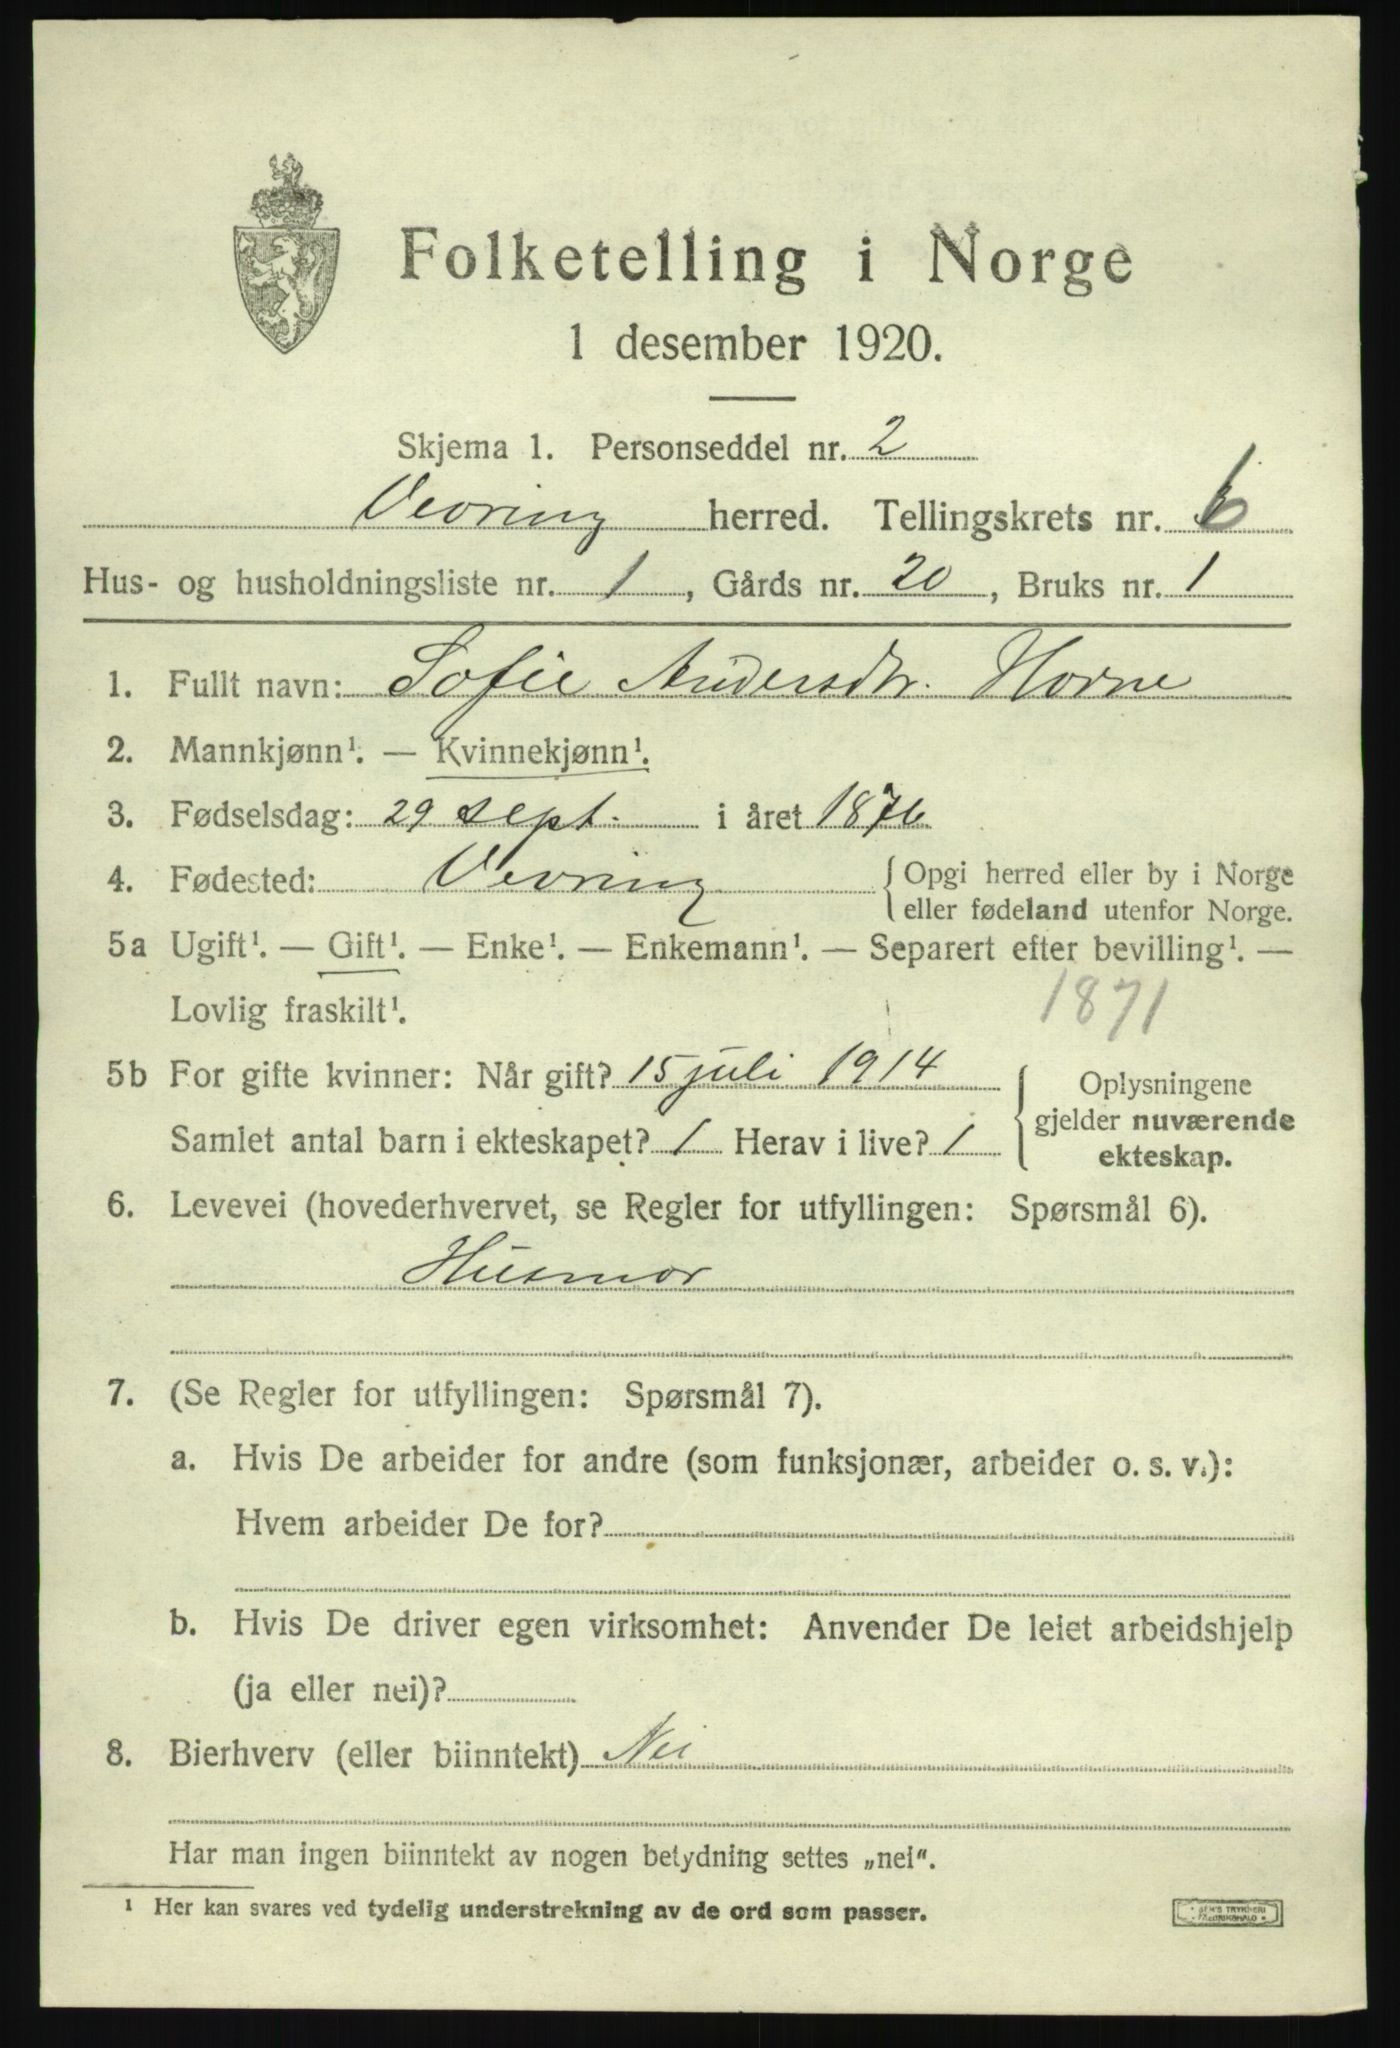 Folketelling i Norge
1 desember 1920.
Skjema 1. Personseddel nr. 2
Vevring herred. Tellingskrets nr. 6
Hus- og husholdningsliste nr. 1, Gårds nr. 20, Bruks nr. 1
1. Fullt navn: Sofie Andersdtr. Horne
2. Mannkjønn¹. — Kvinnekjønn¹.
3. Fødselsdag: 29 sept. i året 1876
4. Fødested: Vevring { Opgi herred eller by i Norge
eller fødeland utenfor Norge.
5a Ugift¹. — Gift¹. — Enke¹. — Enkemann¹. — Separert efter bevilling¹. —
Lovlig fraskilt¹. 1871
5b For gifte kvinner: Når gift? 15 juli 1914
Samlet antal barn i ekteskapet? 1 Herav i live? 1
{ Oplysningene
gjelder nuværende
ekteskap.
6. Levevei (hovederhvervet, se Regler for utfyllingen: Spørsmål 6).
Husmor
7. (Se Regler for utfyllingen: Spørsmål 7).
a. Hvis De arbeider for andre (som funksjonær, arbeider o. s. v.):
Hvem arbeider De for?
b. Hvis De driver egen virksomhet: Anvender De leiet arbeidshjelp
(ja eller nei)?
8. Bierhverv (eller biinntekt) Nei
Har man ingen biinntekt av nogen betydning settes „nei“.
¹ Her kan svares ved tydelig understrekning av de ord som passer.